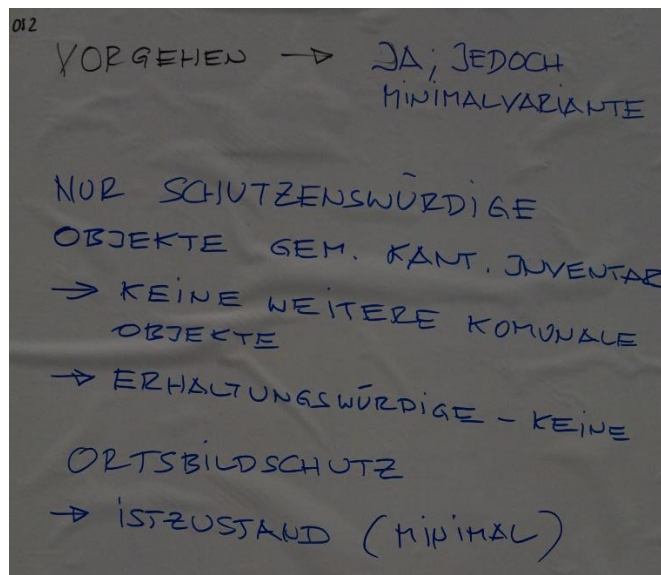 012
VORGEHEN → JA; JEDOCH
MINIMALVARIANTE
NUR SCHUTZENSWÜRDIGE
OBJEKTE GEM. KANT. INVENTAR
→ KEINE WEITERE KOMUNALE
OBJEKTE
→ ERHALTUNGSWÜRDIGE - KEINE
ORTSBILDSCHUTZ
→ ISTZUSTAND (MINIMAL)